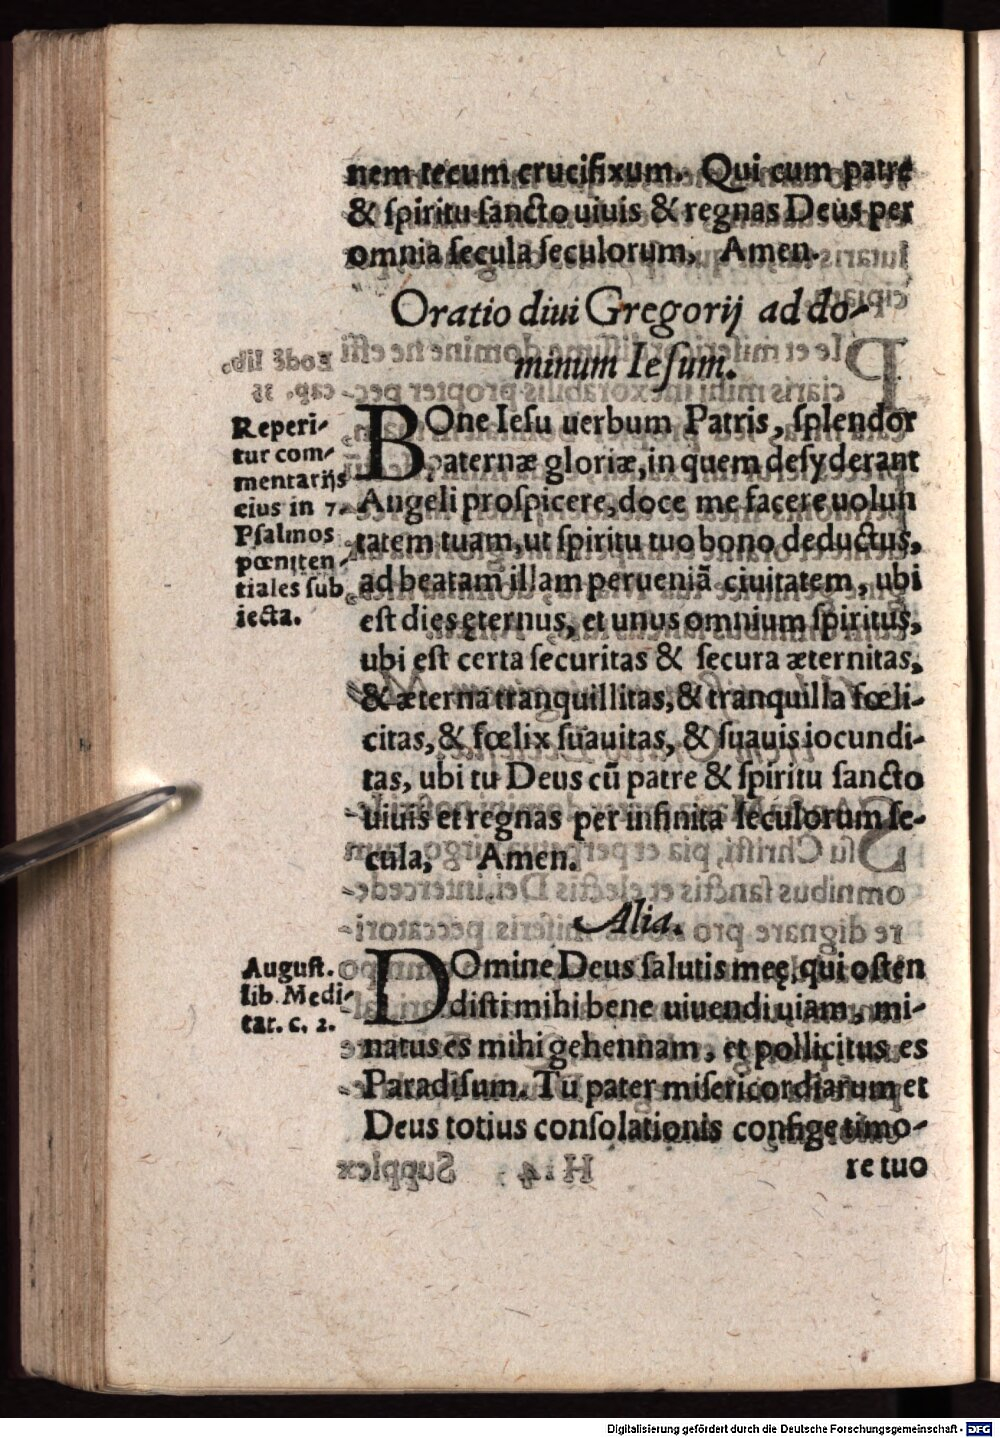 nem tecum crucifixum. Qui cum patre
& ſpiritu ſancto uiuis & regnas Deus per
omnia ſecula ſeculorum, Amen.
Oratio diui Gregorij ad do-
minum Ieſum.
Reperi-
tur com-
mentarijs
eius in 7.
Pſalmos
pœniten-
tiales ſub
iecta.
BOne Ieſu uerbum Patris, ſplendor
paternæ gloriæ, in quem deſyderant
Angeli proſpicere, doce me facere uolun
tatem tuam, ut ſpiritu tuo bono deductus,
ad beatam illam perueniā ciuitatem, ubi
eſt dies ęternus, et unus omnium ſpiritus,
ubi eſt certa ſecuritas & ſecura æternitas,
& æterna tranquillitas, & tranquilla fœli-
citas, & fœlix ſuauitas, & ſuauis iocundi-
tas, ubi tu Deus cū patre & ſpiritu ſancto
uiuis et regnas per infinita ſeculorum ſe-
cula, Amen.
Alia.
Auguſt.
lib. Medi-
tat. c. 2.
DOmine Deus ſalutis meę, qui oſten
diſti mihi bene uiuendi uiam, mi-
natus es mihi gehennam, et pollicitus es
Paradiſum. Tu pater miſericordiarum et
Deus totius conſolationis confige timo-
re tuo
Digitalisierung gefördert durch die Deutsche Forschungsgemeinschaft - DFG